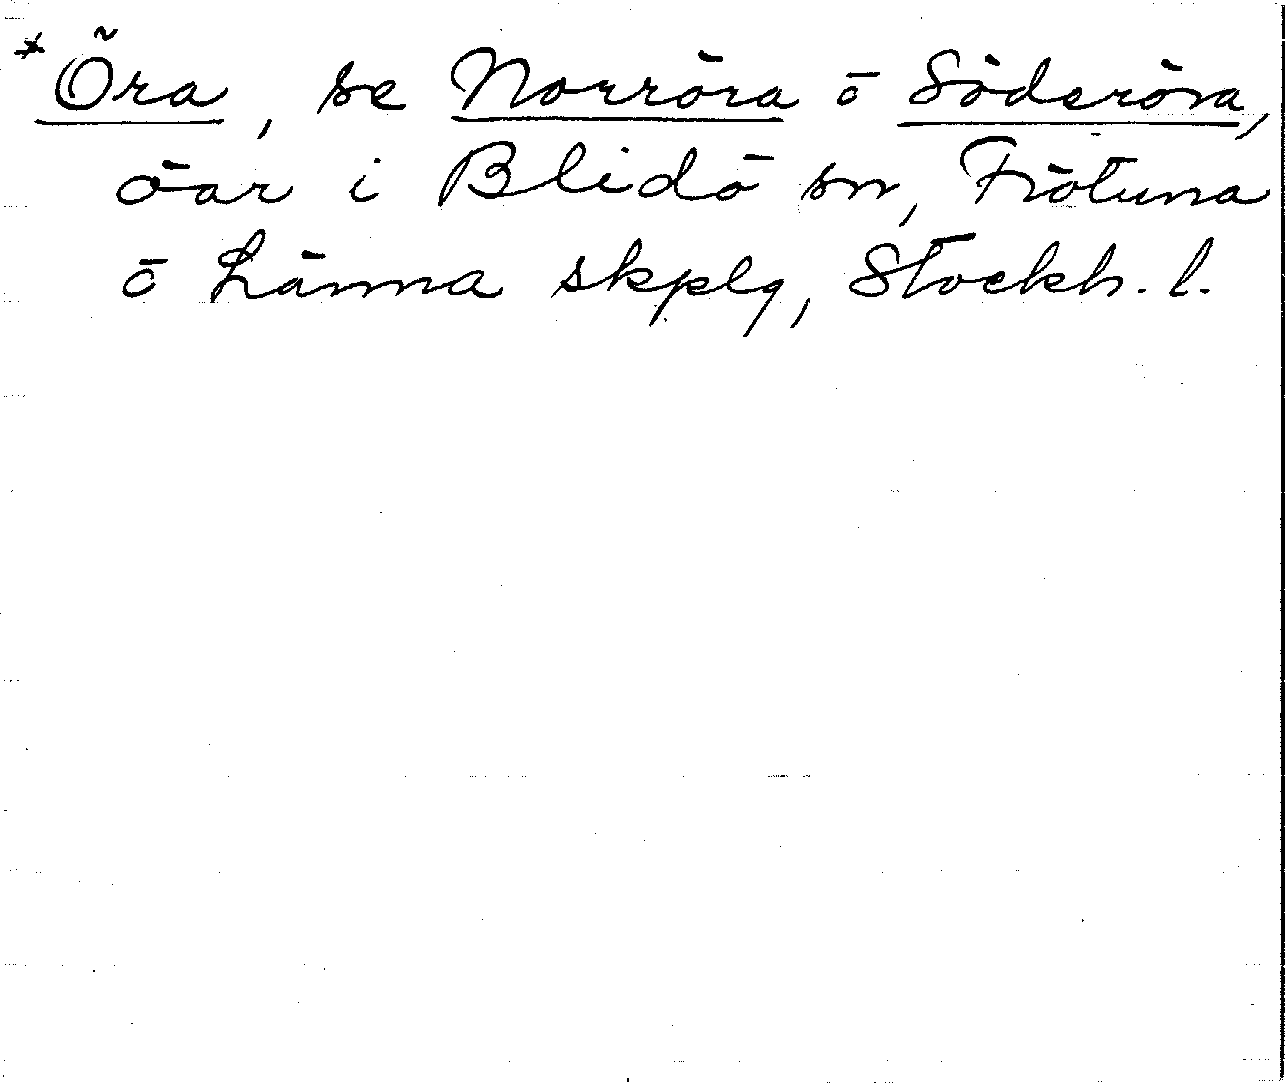 *Öra, se Norröra ō Söderöra,
öar i Blidö sn, Frötuna
ō Länna skplg, Stockh. l.